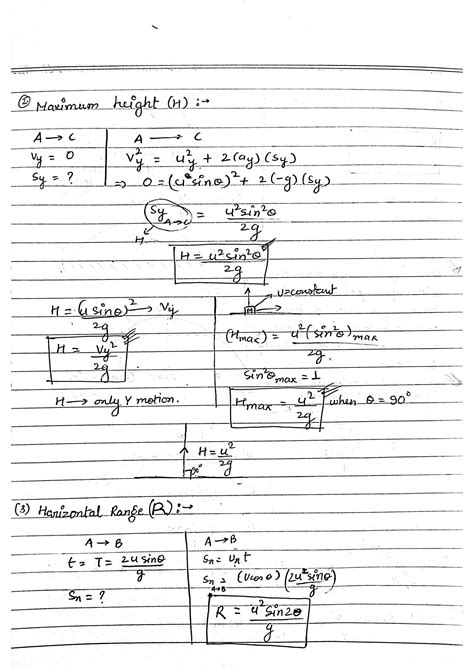 ② Maximum height (H) :→
A → C
Vy = 0
Sy = ?
A → C
Vy² = uy² + 2(ay)(Sy)
⇒ 0 = (u sinθ)² + 2(-g)(Sy)
Sy A→C = u²sin²θ / 2g
H
H = u²sin²θ / 2g
H = (u sinθ)² / 2g → Vy
H = Vy² / 2g
H → only Y motion.
u = constant
(Hmax) = u²(sin²θ)max / 2g.
sin²θmax = 1
Hmax = u² / 2g when θ = 90°
H = u² / 2g
90°
(3) Horizontal Range (R) :→
A → B
t = T = 2u sinθ / g
Sx = ?
A → B
Sx = Ux t
Sx A→B = (u cosθ) (2u sinθ / g)
R = u² sin2θ / g